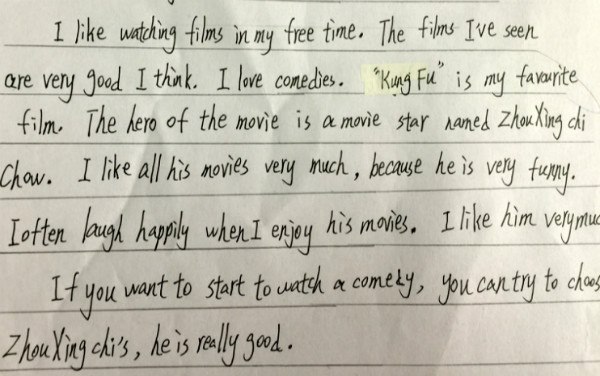 I like watching films in my free time. The films I've seen
are very good I think. I love comedies. "Kung Fu" is my favourite
film. The hero of the movie is a movie star named ZhouXing chi
Chow. I like all his movies very much, because he is very funny.
I often laugh happily when I enjoy his movies. I like him very muc
If you want to start to watch a comedy, you can try to choos
ZhouXing chi's, he is really good.